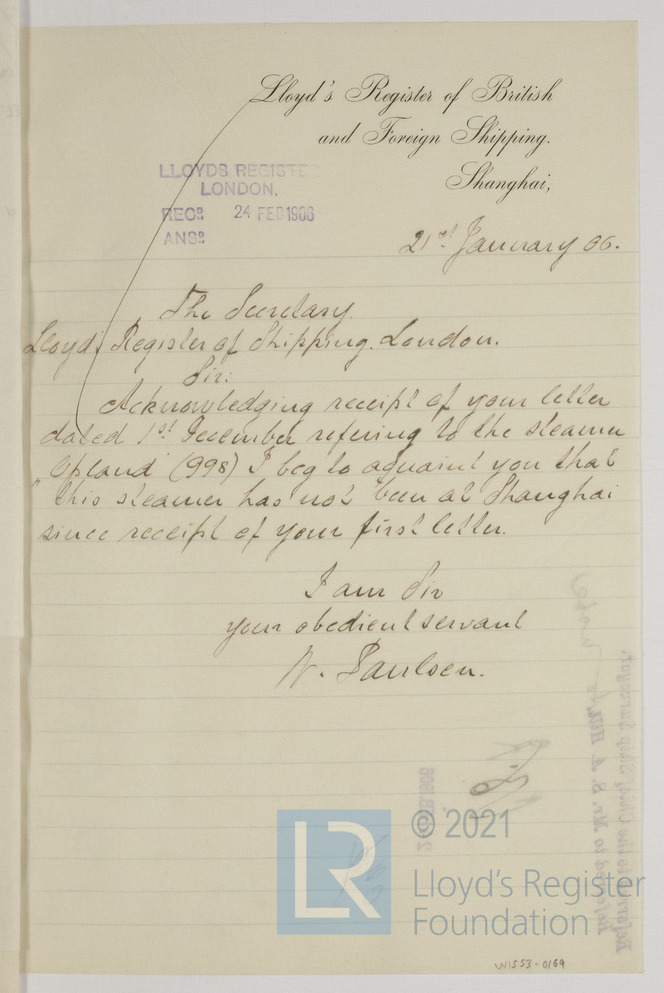 Lloyd's Register of British
and Foreign Shipping.
Shanghai,
LLOYDS REGISTE
LONDON.
RECD. 24 FEB 1906
ANSD.
21st January 06.
The Secretary.
Lloyds Register of Shipping. London.
Sir:
Acknowledging receipt of your letter
dated 1st December refering to the steamer
"Opland" (998) I beg to aquaint you that
this steamer has not been at Shanghai
since receipt of your first letter.
I am Sir
your obedient servant
W. Paulsen.
© 2021
LR
Lloyd's Register
Foundation
W1553-0169